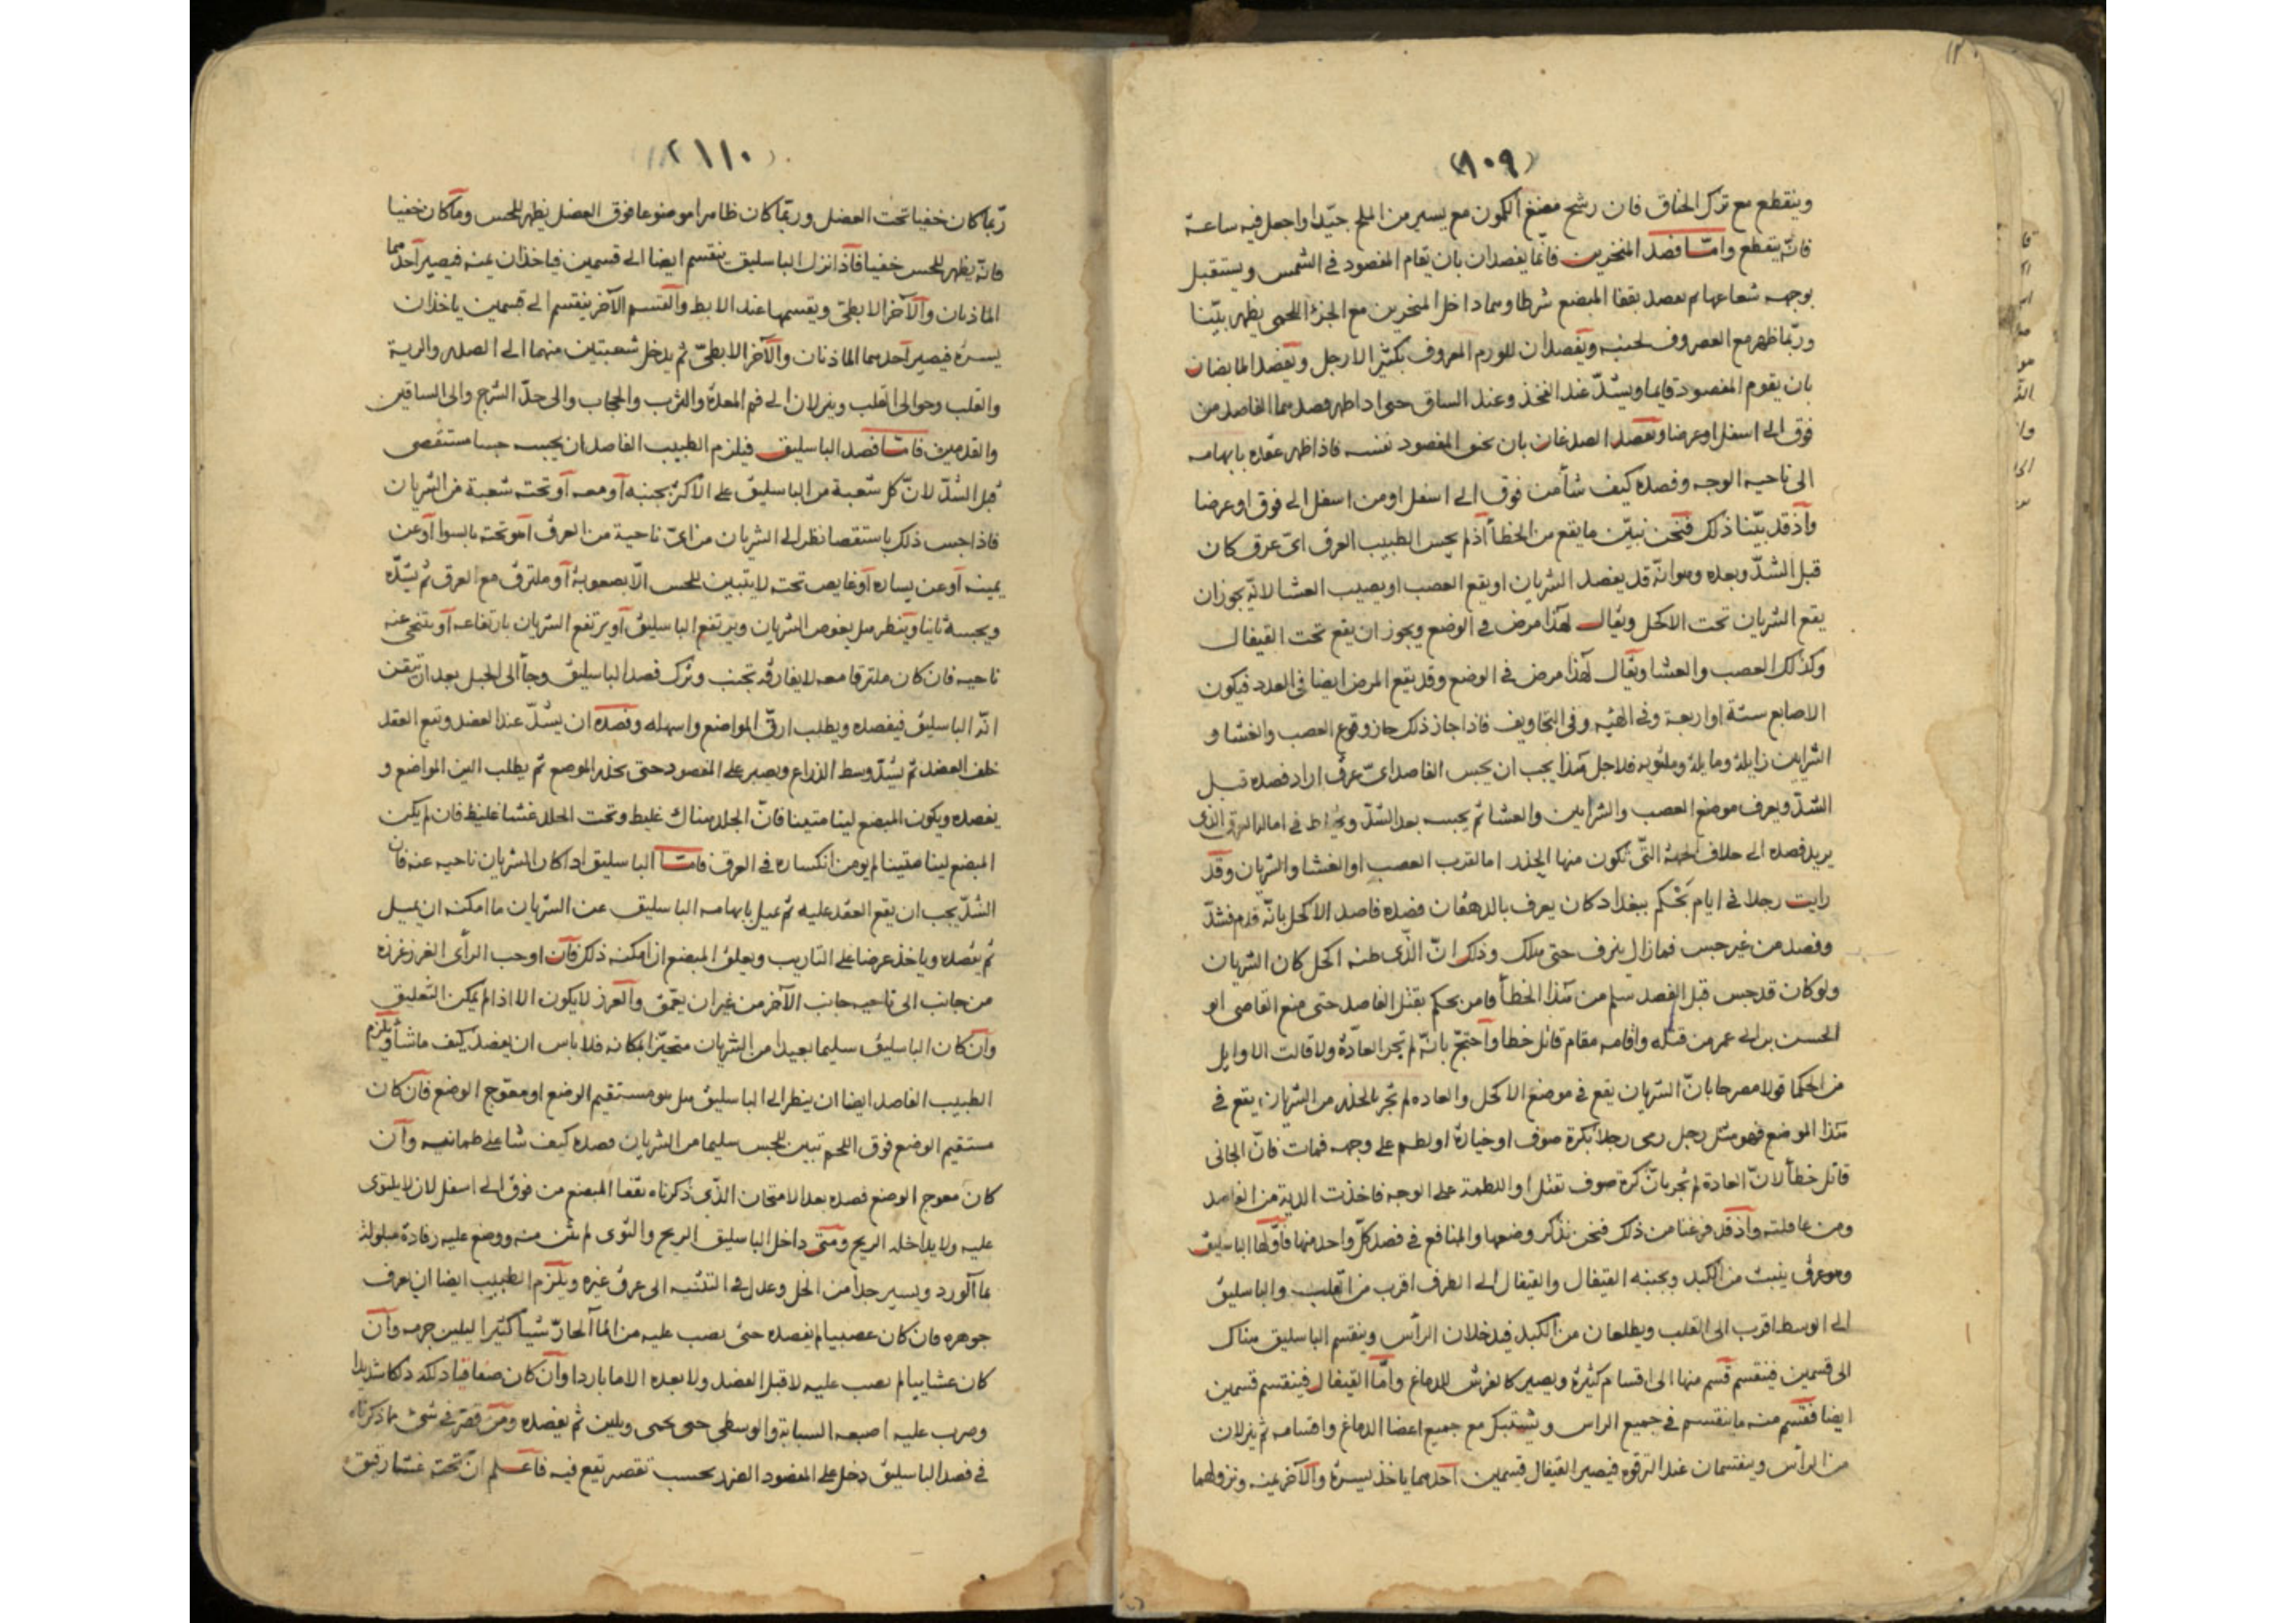 (١٠٩)
وينقطع مع ترك الخناق فان رشح مضغ الكمون مع يسير من الملح جيّدا واجعل فيه ساعة
فانّه ينقطع وامّا فصد المنخرين فانّما يفصدان بان يقام المفصود في الشمس ويستقبل
بوجهه شعاعها ثم يفصد بقفا المبضع شرطا وهما داخل المنخرين مع الجزء اللحمى يظهر بيّنا
وربّما ظهر مع الغضروف لجنبه ويفصدان للورم المعروف بكثير الارجل ويفصد المابضان
بان يقوم المفصود قايما ويشدّ عند الفخذ وعند الساق حتى اذا ظهر فصدهما الفاصد من
فوق الى اسفل او عرضا ويفصد الصدغان بان يخنق المفصود نفسه فاذا ظهر عقده بابهامه
الى ناحية الوجه وفصده كيف شأ من فوق الى اسفل او من اسفل الى فوق او عرضا
واذ قد بيّنا ذلك فنحن نبيّن ما يقع من الخطأ اذ لم يجس الطبيب العرق اىّ عرق كان
قبل الشدّ وبعده وهو انّه قد يفصد الشريان او يقع العصب او يصيب الغشا لانّه يجوز ان
يقع الشريان تحت الاكحل ويقال لهذا مرض في الوضع ويجوز ان يقع تحت القيفال
وكذلك العصب والغشا ويقال لهذا مرض في الوضع وقد يقع المرض ايضا في العدد فيكون
الاصابع ستة او اربعة وفي الهيه وفي التجاويف فاذا جاز ذلك جاز وقوع العصب والغشا و
الشرايين زايلة ومايلة وملتويه فلاجل هذا يجب ان يجس الفاصد اىّ عرق اراد فصده قبل
الشدّ ويعرف موضع العصب والشرايين والغشا ثم يجسه بعد الشدّ ويحتاط في امالة العرق الذى
يريد فصده الى خلاف الجهة التّى تكون منها الحذر اما لقرب العصب او الغشا والشريان وقد
رايت رجلا في ايام بَجْكم ببغداد كان يعرف بالدهقان فصده فاصد الاكحل بانّه قدم فشدّ
وفصد من غير جس فما زال ينزف حتى هلك وذلك انّ الذّى ظنه اكحل كان الشريان
ولو كان قد جس قبل الفصد سلم من هذا الخطأ فامر بجكم بقتل الفاصد حتى منع القاضى ابو
الحسين بن ابى عمر من قتله واقامه مقام قاتل خطا واحتجّ بانّه لم تجر العادة ولا قالت الاوايل
من الحكما قولا مصرحا بانّ الشريان يقع في موضع الاكحل والعاده لم تجر بالحذر من الشريان يقع في
هذا الموضع فهو مثل رجل رمى رجلا بكرة صوف او خيارة او لطم على وجهه فمات فانّ الجانى
قاتل خطأ لانّ العادة لم تجر بانّ كرة صوف تقتل او اللطمة على الوجه فاخذت الدية من الفاصد
ومن عاقلته واذ قد فرغنا من ذلك فنحن نذكر وضعها والمنافع في فصد كلّ واحد منها فأوّلها الباسليق
وهو عرق ينبت من الكبد وبجنبه القيفال والقيفال الى الطرف اقرب من القلب والباسليق
الى الوسط اقرب الى القلب ويطلعان من الكبد فيدخلان الرأس وينقسم الباسليق هناك
الى قسمين فينقسم قسم منها الى اقسام كثيرة ويصير كالفرش للدماغ وامّا القيفال فينقسم قسمين
ايضا فقسم منه ما ينقسم في جميع الراس ويشتبك مع جميع اعضا الدماغ واقسامه ثم ينزلان
من الرأس وينقسمان عند الترقوه فيصير القيفال قسمين احدهما ياخذ يسرة والآخر يمنه ونزولهما
١١٠
ربّما كان خفيا تحت العضل وربّما كان ظاهرا موضوعا فوق العضل يظهر للحس وما كان خفيا
فانّه يظهر للحس خفيا فاذا نزل الباسليق ينقسم ايضا الى قسمين فياخذان يمنه فيصير احدهما
الماذيان والآخر الابطىّ ويقسمها عند الابط والقسم الآخر ينقسم الى قسمين ياخذان
يسرة فيصير احدهما الماذنان والآخر الابطىّ ثم يدخل شعبتين منهما الى الصدر والرية
والقلب وحوالى القلب وينزلان الى فم المعدة والثرب والحجاب والى حدّ الشرج والى الساقين
والقدمين فامّا فصد الباسليق فيلزم الطبيب الفاصد ان يجسه جسا مستقصى
قبل الشدّ لانّ كل شعبة من الباسليق على الاكثر بجنبه او معه او تحته شعبة من الشريان
فاذا جس ذلك باستقصا نظر الى الشريان من اىّ ناحية من العرق اهو تحته بالسوا او عن
يمينه او عن يساره او غايص تحته لا يتبين للحس الّا بصعوبة او ملتزق مع العرق ثم يشدّه
ويجسه ثانيا وينظر هل يغوص الشريان ويرتفع الباسليق او يرتفع الشريان بارتفاعه او يتنحى عنه
ناحيه فان كان ملتزقا معه لا يفارقه تجنب وترك فصد الباسليق وجأ الى الحبل بعد ان تيقن
انّه الباسليق فيفصده ويطلب ارقّ المواضع واسهله وفصده ان يشدّ عند العضد ويقع العقد
خلف العضد ثم يشدّ وسط الذراع ويصبر على المفصود حتى يخدر الموضع ثم يطلب الين المواضع و
يفصده ويكون المبضع لينا متينا فانّ الجلد هناك غليظ وتحت الجلد غشا غليظ فان لم يكن
المبضع لينا متينا لم يومن انكساره في العرق فامّا الباسليق اذا كان الشريان ناحيه عنه فان
الشدّ يجب ان يقع العقد عليه ثم يميل بابهامه الباسليق عن الشريان ما امكنه ان يميل
ثم يفصده وياخذ عرضا على التاريب ويعلق المبضع ان امكنه ذلك فان اوجب الرأى الغرز غرزه
من جانب الى ناحيه جانب الآخر من غير ان يعمّق والغرز لا يكون الا اذا لم يمكن التعليق
وان كان الباسليق سليما بعيدا من الشريان متحيّزا بمكانه فلا باس ان يفصد كيف ما شأ ويلزم
الطبيب الفاصد ايضا ان ينظر الى الباسليق هل هو مستقيم الوضع او معوّج الوضع فان كان
مستقيم الوضع فوق اللحم تبين للجس سليما من الشريان فصده كيف شا على طمانيه وان
كان معوج الوضع فصده بعد الامتحان الذّى ذكرناه بقفا المبضع من فوق الى اسفل لان لا يلتوى
عليه ولا يداخله الريح ومتى داخل الباسليق الريح والتوى لم يثن منه ووضع عليه رفادة مبلولة
بما آلورد ويسير جدا من الخل وعدل في التثنيه الى عرق غيره ويلزم الطبيب ايضا ان يعرف
جوهره فان كان عصبيا لم يفصده حتى يصب عليه من الما الحارّ شيا كثيرا ليلين جرمه وان
كان غشاييا لم يصب عليه لا قبل الفصد ولا بعده الا ما باردا وان كان صفاقيا دلكه دلكا شديدا
وضرب عليه اصبعه السبابة والوسطى حتى يحمى ويلين ثم يفصده ومن قصّر في شئ مما ذكرناه
في فصد الباسليق دخل على المفصود الضرر بحسب تقصير يقع فيه فاعلم ان تحته غشا رقيق